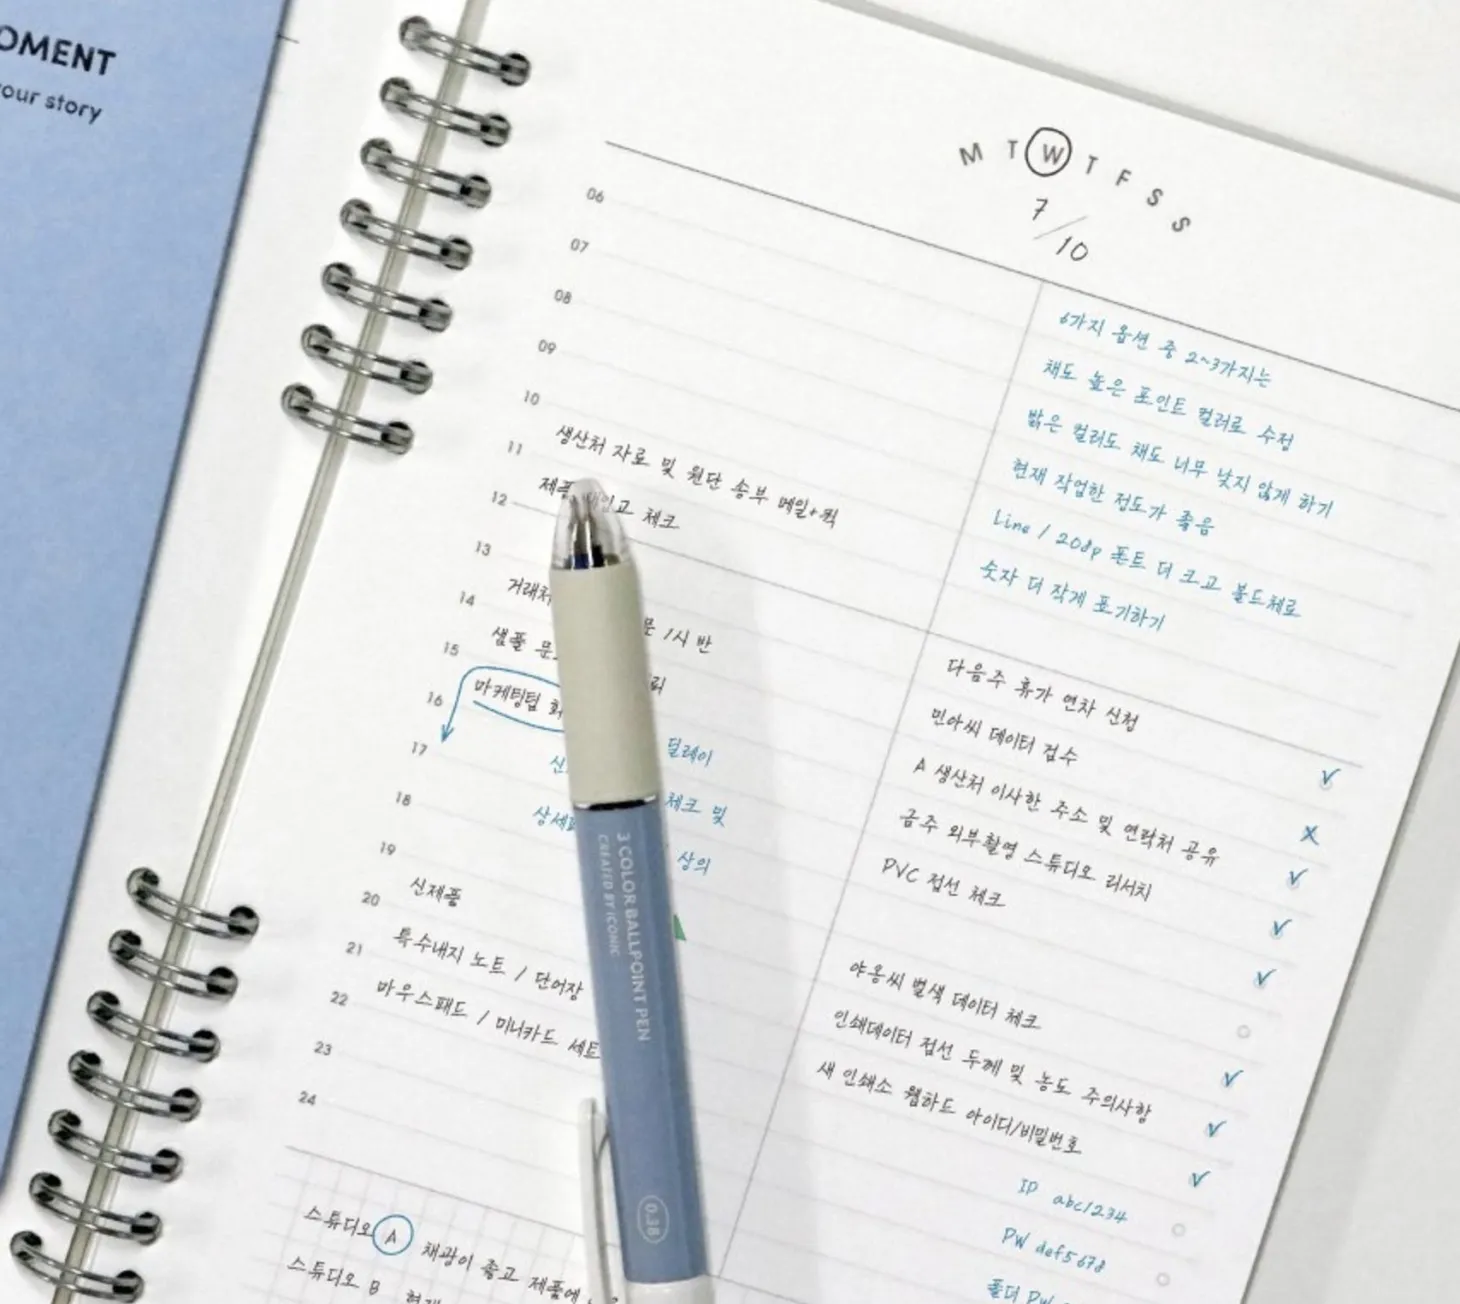 OMENT
your story
M T W T F S S
7/10
06
07
08
09
10
11
12
13
14
15
16
17
18
19
20
21
22
23
24
생산처 자료 및 원단 송부 메일+퀵
제품 체크
거래처 1시 반
샘플
마케팅팀
딜레이
체크 및
상의
신제품
특수내지 노트 / 단어장
마우스패드 / 미니카드 세트
스튜디오 A 채광이 좋고 제품에
스튜디오 B
6가지 옵션 중 2~3가지는
채도 높은 포인트 컬러로 수정
밝은 컬러도 채도 너무 낮지 않게 하기
현재 작업한 정도가 좋음
Line / 208p 폰트 더 크고 볼드체로
숫자 더 작게 표기하기
다음주 휴가 연차 신청
민아씨 데이터 검수
A 생산처 이사한 주소 및 연락처 공유
금주 외부촬영 스튜디오 리서치
PVC 접선 체크
야옹씨 별색 데이터 체크
인쇄데이터 접선 두께 및 농도 주의사항
새 인쇄소 웹하드 아이디/비밀번호
ID abc1234
PW def5678
폴더 PW
3 COLOR BALLPOINT PEN
CREATED BY ICONIC
0.38